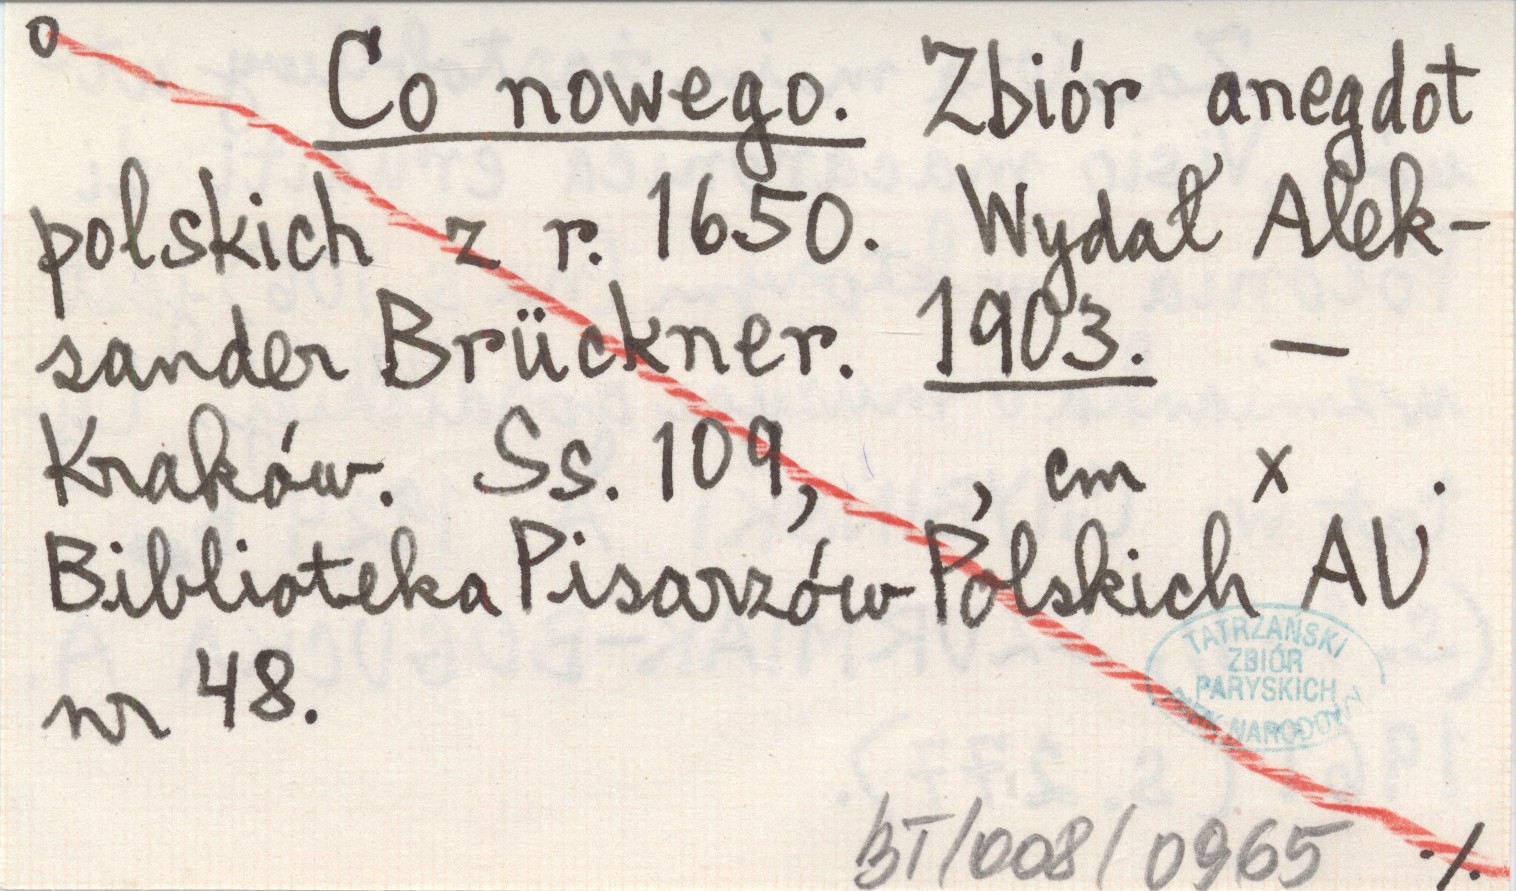 o Co nowego. Zbiór anegdot
polskich z r. 1650. Wydał Alek-
sander Brückner. 1903. —
Kraków. Ss. 109, , cm x .
Biblioteka Pisarzów Polskich AU
nr 48.
TATRZAŃSKI
ZBIÓR
PARYSKICH
NARODÓW
BT/008/0965
./.